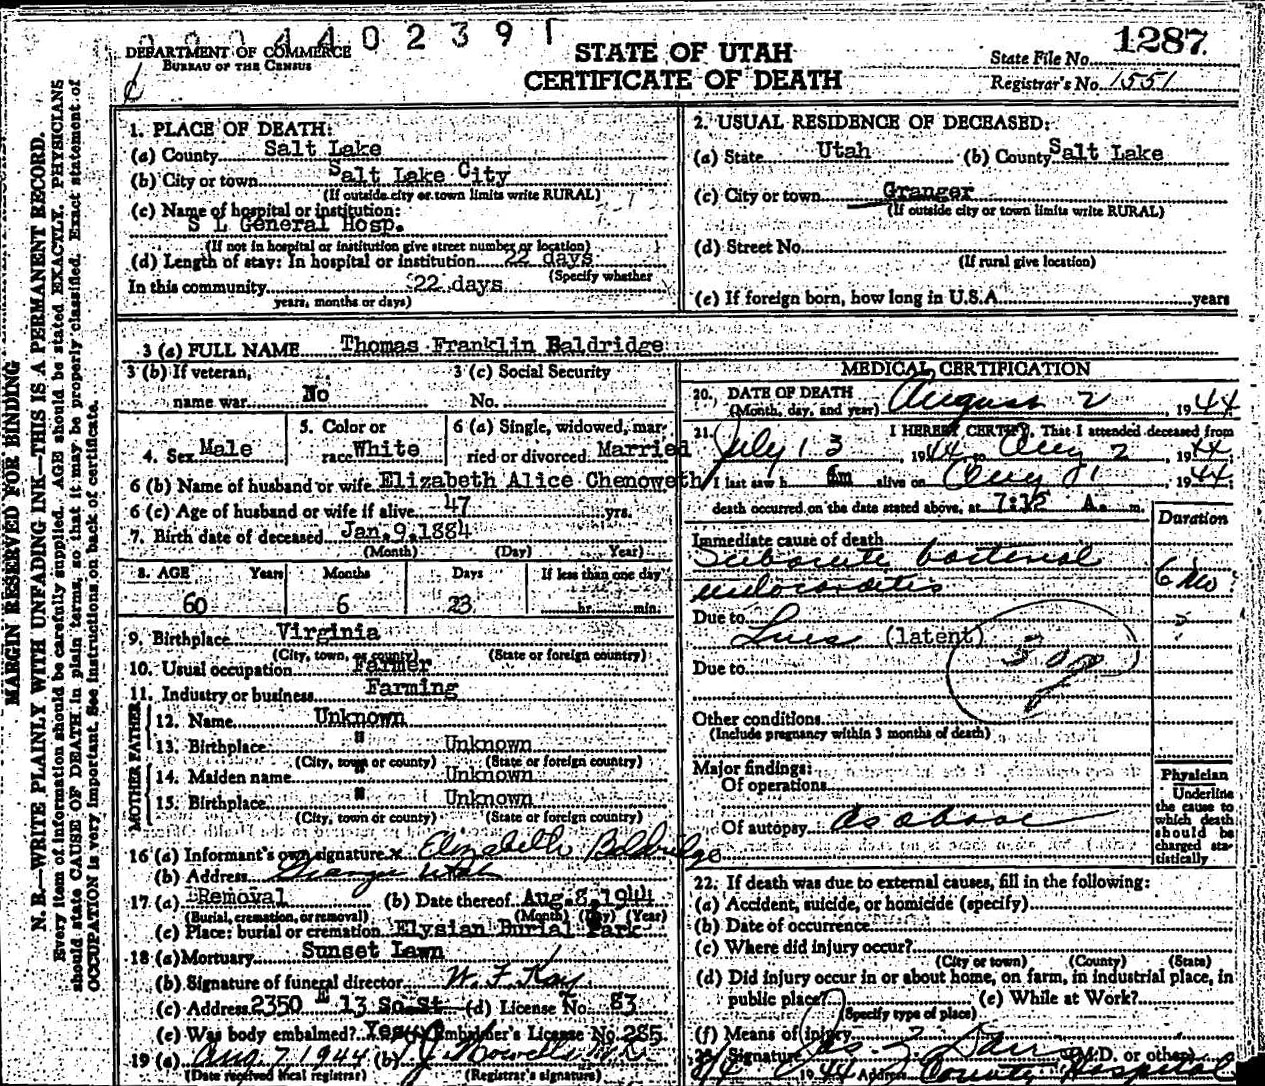 0004402391
DEPARTMENT OF COMMERCE
BUREAU OF THE CENSUS
STATE OF UTAH
CERTIFICATE OF DEATH
State File No. 1287
Registrar's No. 1551
MARGIN RESERVED FOR BINDING
N. B.—WRITE PLAINLY WITH UNFADING INK—THIS IS A PERMANENT RECORD.
Every item of information should be carefully supplied. AGE should be stated EXACTLY. PHYSICIANS
should state CAUSE OF DEATH in plain terms, so that it may be properly classified. Exact statement of
OCCUPATION is very important. See instructions on back of certificate.
1. PLACE OF DEATH:
(a) County Salt Lake
(b) City or town Salt Lake City
(If outside city or town limits write RURAL)
(c) Name of hospital or institution:
S L General Hosp.
(If not in hospital or institution give street number or location)
(d) Length of stay: In hospital or institution 22 days
(Specify whether
In this community 22 days
years, months or days)
2. USUAL RESIDENCE OF DECEASED:
(a) State Utah (b) County Salt Lake
(c) City or town Granger
(If outside city or town limits write RURAL)
(d) Street No.
(If rural give location)
(e) If foreign born, how long in U.S.A. years
3 (a) FULL NAME Thomas Franklin Baldridge
3 (b) If veteran, 3 (c) Social Security
name war No No.
4. Sex Male
5. Color or
race White
6 (a) Single, widowed, mar-
ried or divorced Married
6 (b) Name of husband or wife Elizabeth Alice Chenoweth
6 (c) Age of husband or wife if alive 47 yrs.
7. Birth date of deceased Jan. 9, 1884
(Month) (Day) Year)
8. AGE Years Months Days If less than one day
60 6 23 hr. min.
9. Birthplace Virginia
(City, town, or county) (State or foreign country)
10. Usual occupation Farmer
11. Industry or business Farming
FATHER
12. Name Unknown
13. Birthplace " Unknown
(City, town or county) (State or foreign country)
MOTHER
14. Maiden name " Unknown
15. Birthplace " Unknown
(City, town or county) (State or foreign country)
16 (a) Informant's own signature x Elizabeth Baldridge
(b) Address Granger Utah
17 (a) Removal (b) Date thereof Aug. 8, 1944
(Burial, cremation, or removal) (Month) (Day) (Year)
(c) Place: burial or cremation Elysian Burial Park
18 (a) Mortuary Sunset Lawn
(b) Signature of funeral director W. F. Kay
(c) Address 2350 E 13 So. St. (d) License No. 83
(e) Was body embalmed? Yes Embalmer's License No. 285
19 (a) Aug 7, 1944 (b)
(Date received local registrar) (Registrar's signature)
MEDICAL CERTIFICATION
20. DATE OF DEATH
(Month, day, and year) August 2, 1944
21. I HEREBY CERTIFY, That I attended deceased from
July 13, 1944 to Aug 2, 1944
I last saw h im alive on Aug 1, 1944;
death occurred on the date stated above, at A. m.
Duration
Immediate cause of death
Subacute bacterial
endocarditis 6 Mo
Due to
Lues (latent)
30
Due to
Other conditions
(Include pregnancy within 3 months of death)
Major findings:
Of operations
Of autopsy As above
Physician
Underline
the cause to
which death
should be
charged sta-
tistically
22. If death was due to external causes, fill in the following:
(a) Accident, suicide, or homicide (specify)
(b) Date of occurrence
(c) Where did injury occur?
(City or town) (County) (State)
(d) Did injury occur in or about home, on farm, in industrial place, in
public place? (e) While at Work?
(Specify type of place)
(f) Means of injury
23. Signature (M.D. or other)
8/4 1944 Address County Hospital